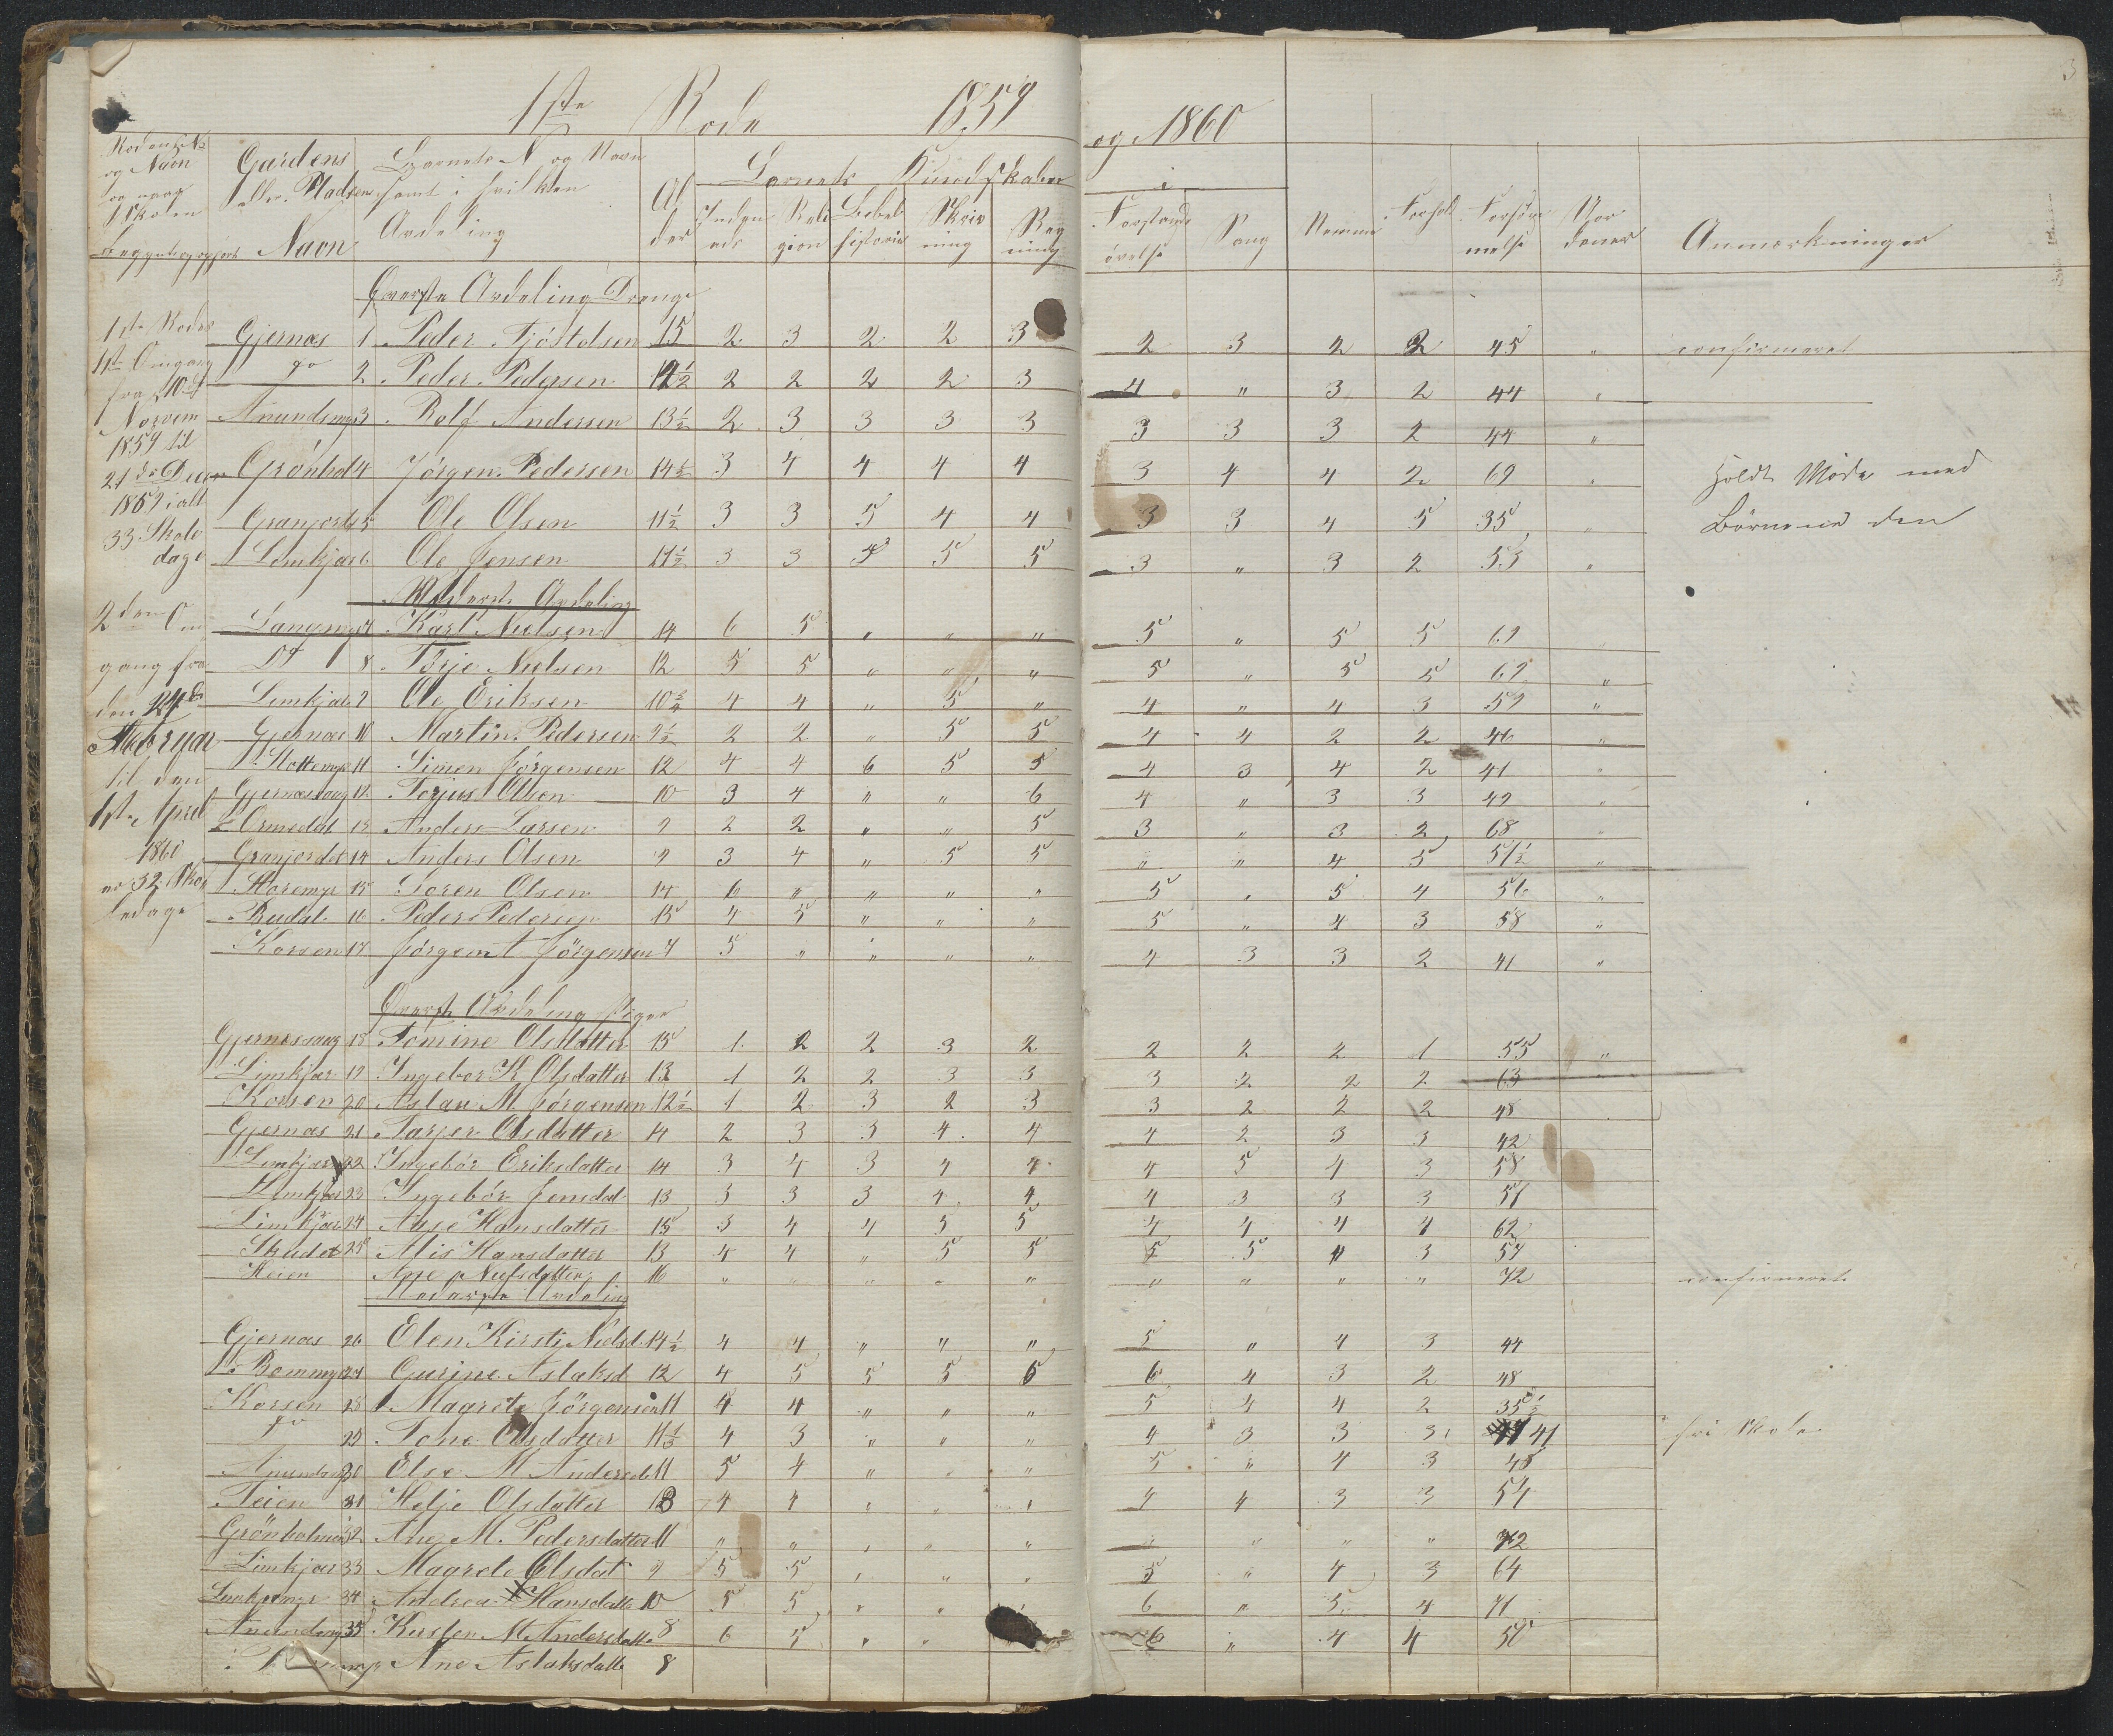 1ste Rode 1859 og 1860
3
Rodens No og Navn
Gaardens eller Pladsens Navn
Barnets No og Navn samt i hvilken Avdeling
Alder
Barnets Kundskaber i
Religion
Bibelhistorie
Skrivning
Regning
Forstandsøvelse
Sang
Nemme
Forhold
Forsømmelse
Anmærkninger
Øverste Avdeling Drenge
1ste Rodes
1ste Omgang
fra 10de
Novem
1859 til
21de Decem
1859 i alt
33 Skole
dage
2den Om
gang fra
den 24de
Februar
til den
1ste April
1860
er 32 Sko
ledage
Gjernæs 1 Peder Tjöstolsen 15 2 3 2 2 3 2 3 2 2 45 " confirmeret
do 2 Peder Pedersen 2 2 2 2 3 4 " 3 2 44 "
Amundsmyr 3 Rolf Andersen 13½ 2 3 3 3 3 3 3 3 2 44 "
Grönhol 4 Jörgen Pedersen 14½ 3 4 4 4 4 3 4 4 2 69 " Holdt Møde med
Granjordet 5 Ole Olsen 11½ 3 3 5 4 4 3 3 4 5 35 " Börnene den
Limkjær 6 Ole Jensen 11½ 3 3 5 5 3 " 3 2 53 "
Nederste Avdeling
Langmyr 7 Karl Nielsen 14 6 5 " " " 5 " 5 5 69 "
Dt 8 Törje Nielsen 12 5 5 " " " 5 " 5 5 69 "
Limkjær 9 Ole Eriksen 4 4 " 5 " 4 " 4 3 59 "
Gjernæs 10 Martin Pedersen 9½ 2 2 " 5 5 4 4 2 2 46 "
11 Simen Jörgensen 12 4 4 6 5 5 4 3 4 2 41 "
Gjernæshaug 12 Torjus Olsen 10 3 4 " " 6 4 " 3 3 49 "
Ormedal 13 Anders Larsen 9 2 2 " " 5 3 " 3 2 68 "
Granjordet 14 Anders Olsen 9 3 4 " 5 5 " " 4 5 51½ "
Storemyr 15 Soren Olsen 14 6 " " " " 5 " 5 4 56 "
Brudal 16 Peder Pedersen 15 4 5 " " " 5 " 4 3 58 "
Korsen 17 Jörgen Jörgensen 7 5 " " " " 4 3 3 2 41 "
Øverste Avdeling Piger
Gjernæshaug 18 Tomine Olsdatter 15 1 2 2 3 2 2 2 2 1 55 "
Limkjær 19 Ingebor K Olsdatter 13 1 2 2 3 3 3 2 2 2 63 "
Korsen 20 Aslau M Jörgensen 12½ 1 2 3 2 3 3 2 2 2 48
Gjernæs 21 Tarjer Olsdatter 14 2 3 3 4 4 4 2 3 3 42
Limkjær 22 Ingebör Eriksdatter 14 3 4 3 4 4 4 5 4 3 58
Limkjær 23 Ingebör Jensdat 13 3 3 3 4 4 4 3 3 3 51
Limkjær 24 Aase Hansdatter 15 3 4 4 5 5 4 4 4 4 62
Skudet 25 Alis Hansdatter 13 4 4 " 5 5 5 5 4 3 59
Heien Ane Nielsdatter 16 " " " " " " " " " 72 confirmeret
Nederste Avdeling
Gjernæs 26 Elen Kirsti Nielsd 14½ 4 4 " " " 5 " 4 3 44
Bommyr 27 Gurine Aslaksd 12 4 5 5 5 6 6 4 3 2 48
Korsen 28 Magrete Jörgensen 11 4 4 " " " 5 4 4 2 35½
do 29 Tone Olsdatter 4 3 " " " 4 3 3 3 41 fri Skole
Amundsmyr 30 Else M Andersd 11 5 4 " " " 5 " 4 3 45
Teien 31 Helje Olsdatter 13 4 4 " " " 4 4 3 3 54
Grönholmen 32 Ane M. Pedersdatter 11 " " " " " " " " " 72
Limkjær 33 Magrete Olsdat 9 5 5 " " " 5 " 4 3 64
Limkjærmyr 34 Andrea Hansdatte 10 5 5 " " " 6 " 5 4 71
Amundsmyr 35 Kirsten M Andersdatte 8 6 5 " " 6 " 4 4 50
Ane Aslaksdatte 8